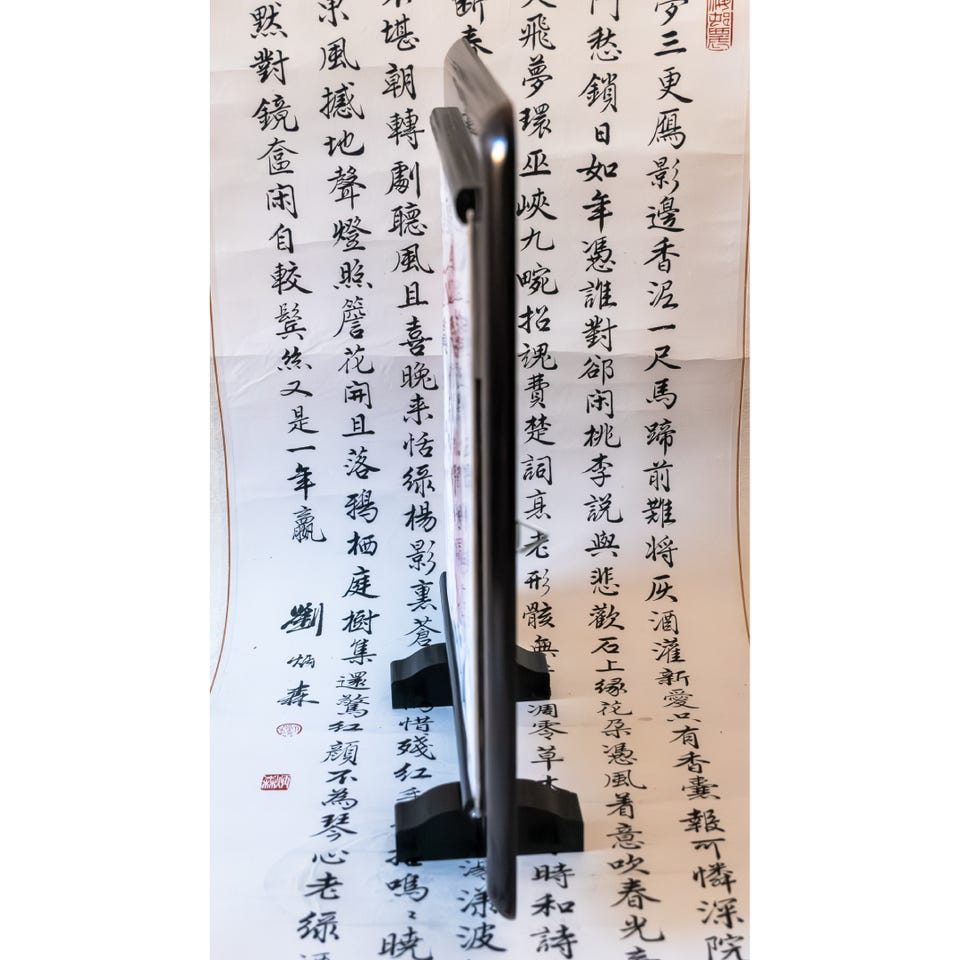 夢三更鴈影邊香泥一尺馬蹄前難將灰酒灌新愛只有香囊報可憐深院
門愁鎖日如年憑誰對卻閑桃李說與悲歡石上緣花朵憑風着意吹春光
飛夢環巫峽九畹招魂費楚詞衰老形骸無凋零草時和詩
漾波
堪朝轉劇聽風且喜晚来恬綠楊影裏蒼惜殘紅嗚ミ曉
東風撼地聲燈照簷花開且落鴉栖庭樹集還驚紅顔不為琴心老綠
默對鏡奩閑自較鬂絲又是一年贏
劉炳森